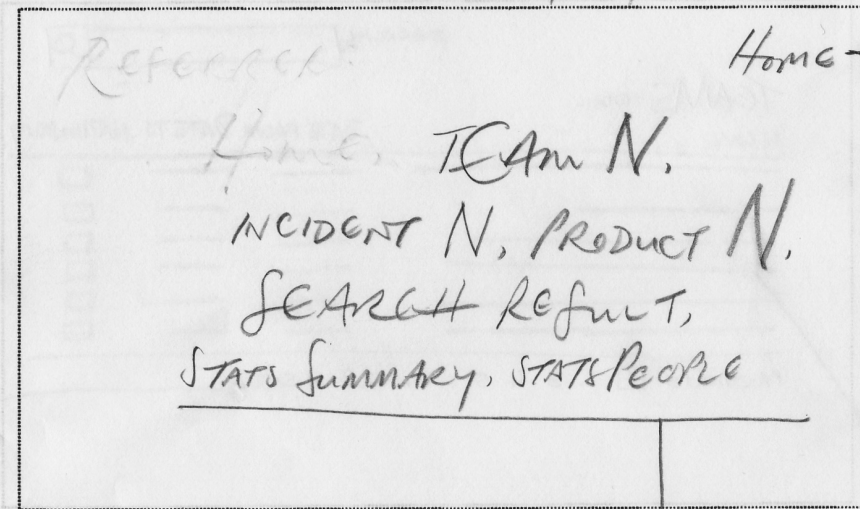 Home-
Referrer:
Home, TEAM N.
INCIDENT N, PRODUCT N.
SEARCH RESULT,
STATS SUMMARY, STATS PEOPLE